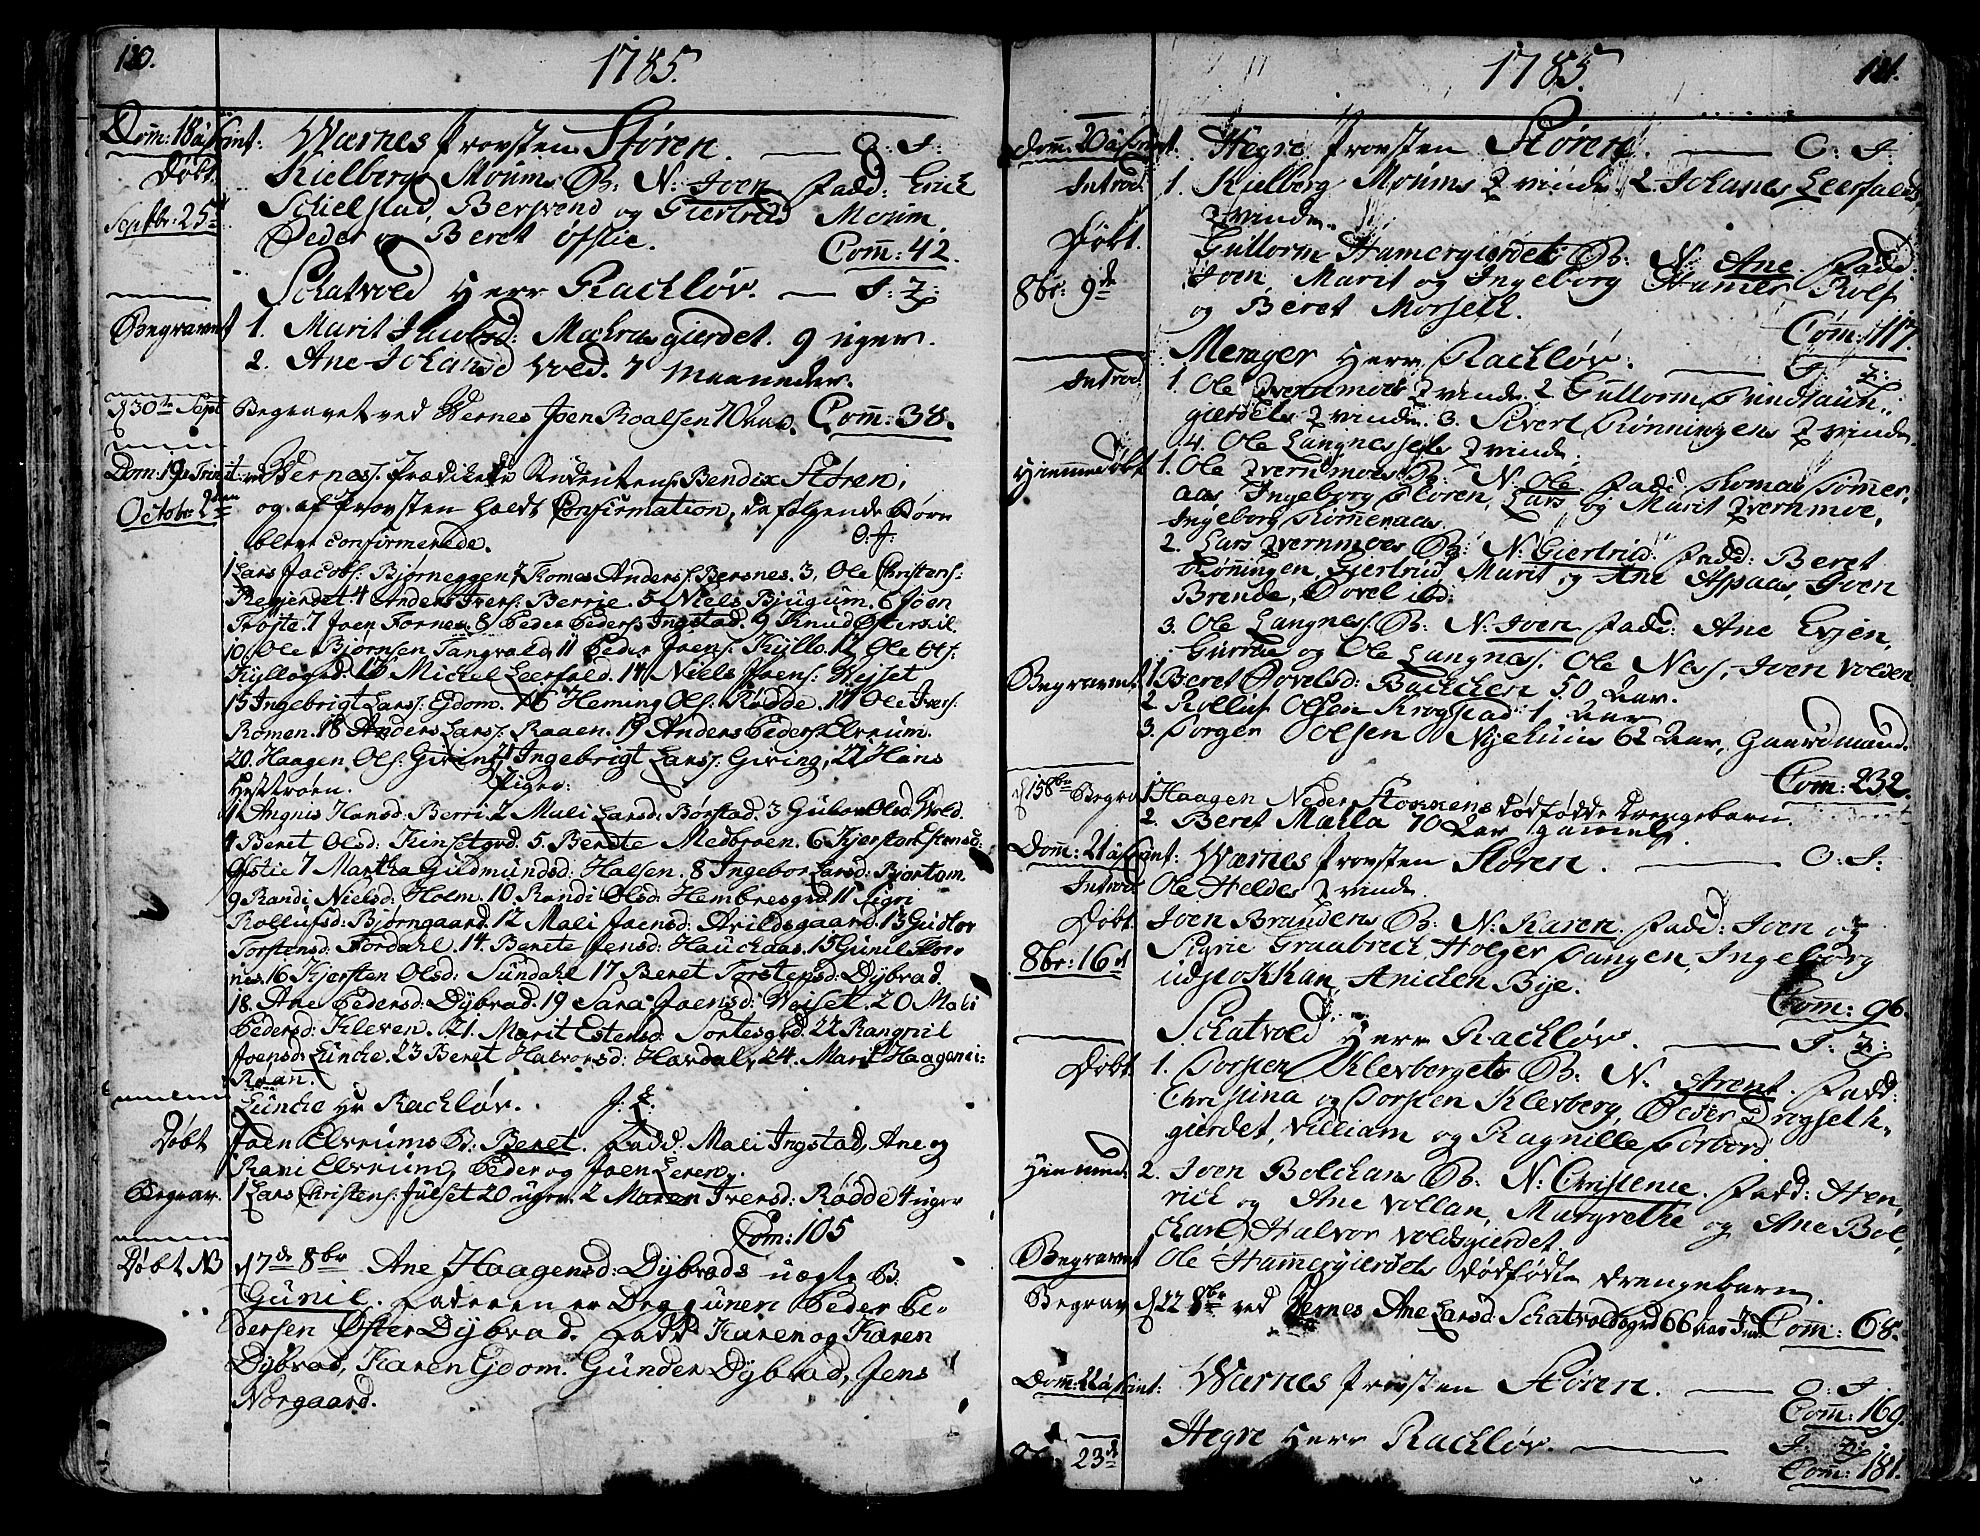 120.
1785.
Dom: 18 a Trint: Wærnes Provsten Støren. — O: J:
Døbt Kielberg Moums B: N: Joen. Fadd: Erich
Septbr: 25de Schielstad, Bersvend og Giertrud Moum.
Peder og Beret Øfstie. Com: 42.
Schatvold Herr Rachløv. — J: Z:
Begravet 1. Marit Jacobsd: Machrasgierdet. 9 uger.
2. Ane Johansd Vold. 7 Maaneder.
d 30te Sept Begravet ved Wernes Joen Roalsen 70 aar. Com: 38.
Dom: 19 p Trinit: Wernes. Prædikede Studentens. Bendix Støren;
Octobr: 2den og af Provsten holdt Confirmation, da følgende Børn
blev confirmerede. O: J:
1 Lars Jacobs: Bjørneggen 2 Tomas Anders: Bersnes. 3, Ole Christens:
Regierdet. 4 Anders Ivers: Berrie. 5 Niels Bjugum. 6 Joen
Trøite. 7 Joen Fornes. 8 Peder Peders: Ingstad. 9 Knud Østersil
10 Ole Bjørnsen Tangvald 11 Peder Joens: Kyllo. 12 Ole Ols:
Kyllogrd. 13 Michel Leerfald. 14 Niels Joens: Wejset
15 Ingebrigt Larss: Eidom. 16 Heming Ols: Rødde. 17 Ole Ivers:
Romen. 18 Anders Lars: Raaen. 19 Anders Peders: Elvrum.
20. Haagen Ols: Giving 21 Ingebrigt Larss: Giving, 22 Hans
Hestrøen. Piger.
1 Angnis Hansd: Berri. 2 Mali Larsd: Børstad. 3 Gubor Olsd: Vold.
4 Beret Olsd: Kinsetgrd. 5. Berete Medbroen. 6 Kjersten Estensd:
Øfstie 7 Martha Gudmundsd: Halsen. 8 Ingebor Larsd: Bjortom.
9 Randi Nielsd: Holm. 10 Randi Olsd: Hembresgrd 11 Sigri
Rollufsd: Bjørngaard. 12 Mali Joensd: Avildsgaard. 13 Gudlov
Torstensd: Fordahl. 14. Berete Jensd: Hauchaas. 15 Gunil
nes. 16 Kjersten Olsd: Sundahl 17 Beret Torstensd: Dybvad.
18. Ane Pedersd: Dybvad. 19 Sara Joensd: Weiset. 20 Mali
Pedersd: Kleven. 21. Marit Estensd: Sortesgrd. 22 Rangnil
Joensd: Luncke. 23 Beret Halvorsd: Havdal, 24. Marit Haagens:
Røan.
Luncke Hr Rachløv. J: Z:
Døbt Joen Elvrums B: Beret. Fadd: Mali Ingstad, Ane og
Rani Elvrum, Peder og Joen Leren.
Begrav. 1 Lars Christens: Julset 20 uger. 2 Maren Iversd: Rødde 4 uger
Com: 105
Døbt NB d 7de 8br Ane Haagensd: Dybvads uægte B.
Gunil. Faderen er Dragunen Peder Pe-
dersen Øster Dybvad. Fadd: Karen og Karen
Dybvad, Karen Gjdom. Gunder Dybvad, Jens
Norgaard.
121.
1785
Dom: 20 a Trint. Hegre Provsten Støren. — O: J:
Introd. 1. Kielberg Moums Qvinde. 2 Johanes Leerfalds
Qvinde.
Døbt. Gullorm Hamergierdet B: N: Ane. Fadd:
8br: 9de Joen, Marit og Ingeborg Hamer, Rolf
og Beret Morseth. Com: 117.
Merager Herr Rachløv. — J: Z:
Introd. 1. Ole Qvernmoes Qvinde. 2 Gullorm Sundtaun-
gierdets Qvinde. 3. Sivert Rønningens Qvinde
4. Ole Langnessets Qvinde.
Hiemmedøbt 1. Ole Qvernmoes B: N: Ole. Fadd: Thomas Sømer-
aas, Ingeborg Floren, Lars og Marit Qvernmoe,
Ingeborg Sømeraas.
2. Lars Qvernmoes B: N: Giertrud. Fadd: Beret
Rønningen, Giertrud, Marit og Ane Aspaas, Joen
Brende,
3. Ole Langness. B: N: Joen. Fadd: Ane Evjen,
Gurrue og Ole Langnes. Ole Næs, Joen Volden.
Begravet. 1 Beret Povelsd: Bachchen 50 Aar.
2 Rolluf Olsen Krogstad 1 Aar
3. Torger Olsen Nyehuus 62 Aar, Gaardmand.
Com: 232.
d 15 8br Begrav 1 Haagen Neder Stornens dødfødde drengebarn.
2. Beret Malla 70 Aar gamel.
Dom: 21 a Trint: Wærnes Provsten Støren. — O: J:
Introd Ole Heldes Qvinde.
Døbt Joen Brandens B: N: Karen. Fadd: Joen og
8br: 16d Sigrie Graabrech, Holger Pangen, Ingeborg
udstokkan, Anichen Bye. Com: 96.
Schatvold Herr Rachløv. — J: Z:
Døbt 1. Torsten Klevbergets B: N. Arent. Fadd:
Christina og Torsten Klevberg, Peder Drogseth-
gierdet, Villiam og Ragnille Forbord
Hiemmed. 2. Joen Bolchans B: N: Christence. Fadd: Hen-
rich og Ane Vollan, Margrethe og Ane Bol-
chan, Halvor Voldsgierdet
Begravet Ole Hamergierdets dødfødte drengebarn.
Begrav. d 22 8br ved Vernes Ane Larsd: Schatvoldsgrd 66 aar Com: 68.
Dom: 22 a Trint: Wærnes Provsten Støren. — O: J:
Com: 169.
Hegre Herr Rachløv. — J: Z:
23d Com: 181.